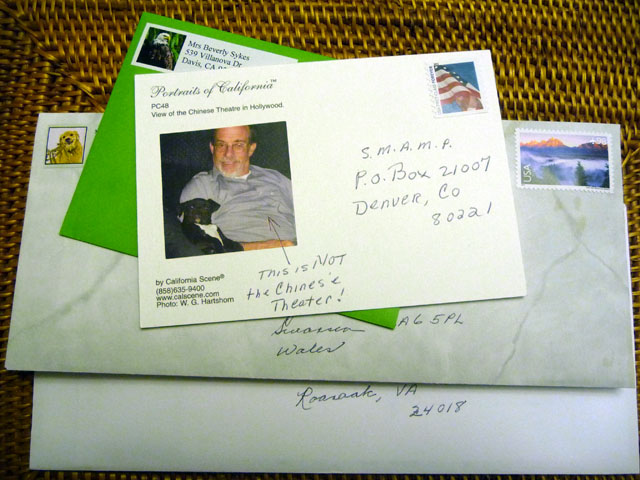 Mrs Beverly Sykes
539 Villanova Dr
Davis, CA
Portraits of California™
PC48
View of the Chinese Theatre in Hollywood.
S.M.A.M.P.
P.O. Box 21007
Denver, CO
80221
by California Scene®
(858)635-9400
www.calscene.com
Photo: W. G. Hartshorn
This is NOT
the Chines'e
Theater!
USA
Swansea
A6 5PL
Wales
Roanoak, VA
24018